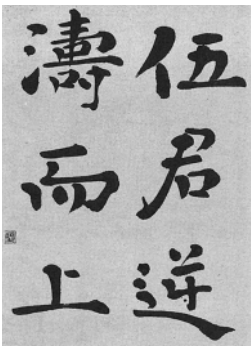 伍君逆
濤而上